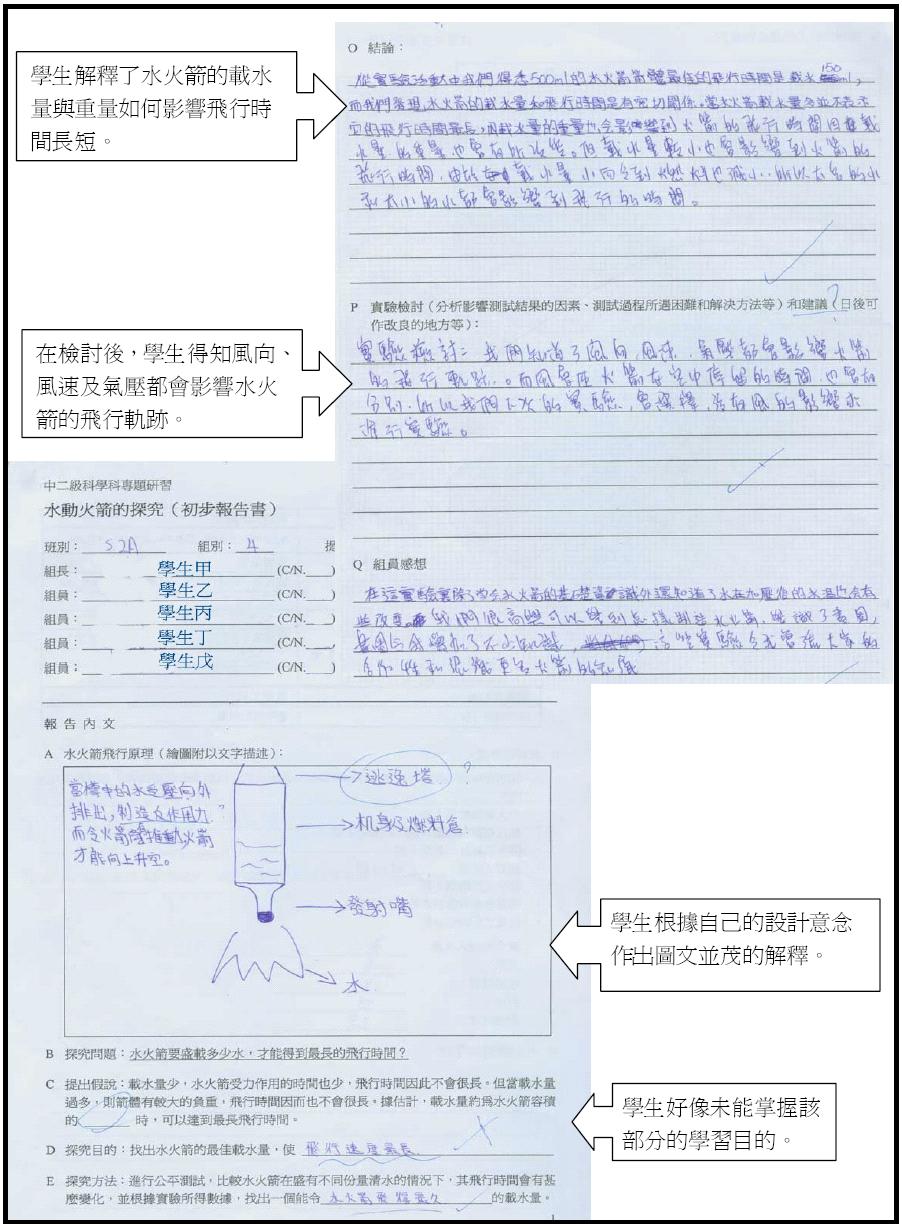 學生解釋了水火箭的載水
量與重量如何影響飛行時
間長短。
O 結論：
從實驗活動中我們得悉500ml的水火箭箭體最佳的飛行時間是載水150ml，
而我們發現，水火箭的載水量和飛行時間是有密切關係。當水火箭載水量多並不表示
它的飛行時間最長，因載水量的重量也會影響到火箭的飛行時間因為載
水量的重量也會有所改變。但載水量較小也會影響到火箭的
飛行時間，由於載水量小而令到燃料也減小，所以太多的水
和太小的水都會影響到飛行的時間。
在檢討後，學生得知風向、
風速及氣壓都會影響水火
箭的飛行軌跡。
P 實驗檢討（分析影響測試結果的因素、測試過程所遇困難和解決方法等）和建議（日後可
作改良的地方等）：
?
實驗檢討：我們知道了風向，風速，氣壓都會影響火箭
的飛行軌跡。而風會在火箭在空中停留的時間，也會有
分別，所以我們下次的實驗，會選擇，沒有風的影響下
進行實驗。
Q 組員感想
在這實驗裏除了學會水火箭的基礎知識外還知道了水在加壓後的水溫也會有
些改變。我們很高興可以學到怎樣制造水火箭，
這些實驗令我
合作性和認識更多火箭的知識
中二級科學科專題研習
水動火箭的探究（初步報告書）
班別： S2A 組別： 4
組長： 學生甲 (C/N. )
組員： 學生乙 (C/N. )
組員： 學生丙 (C/N. )
組員： 學生丁 (C/N. )
組員： 學生戊 (C/N. )
報告內文
A 水火箭飛行原理（繪圖附以文字描述）：
當樽中的水受壓向外
排出，制造反作用力
而令火箭推動，火箭
才能向上升空。
?
逃逸塔 ?
机身及燃料倉
發射嘴
水
學生根據自己的設計意念
作出圖文並茂的解釋。
B 探究問題：水火箭要盛載多少水，才能得到最長的飛行時間？
C 提出假說：載水量少，水火箭受力作用的時間也少，飛行時間因此不會很長。但當載水量
過多，則箭體有較大的負重，飛行時間因而也不會很長。據估計，載水量約為水火箭容積
的 時，可以達到最長飛行時間。
D 探究目的：找出水火箭的最佳載水量，使 飛行速度最長
E 探究方法：進行公平測試，比較水火箭在盛有不同份量清水的情況下，其飛行時間會有甚
麼變化，並根據實驗所得數據，找出一個能令 水火箭飛得最久 的載水量。
學生好像未能掌握該
部分的學習目的。
1